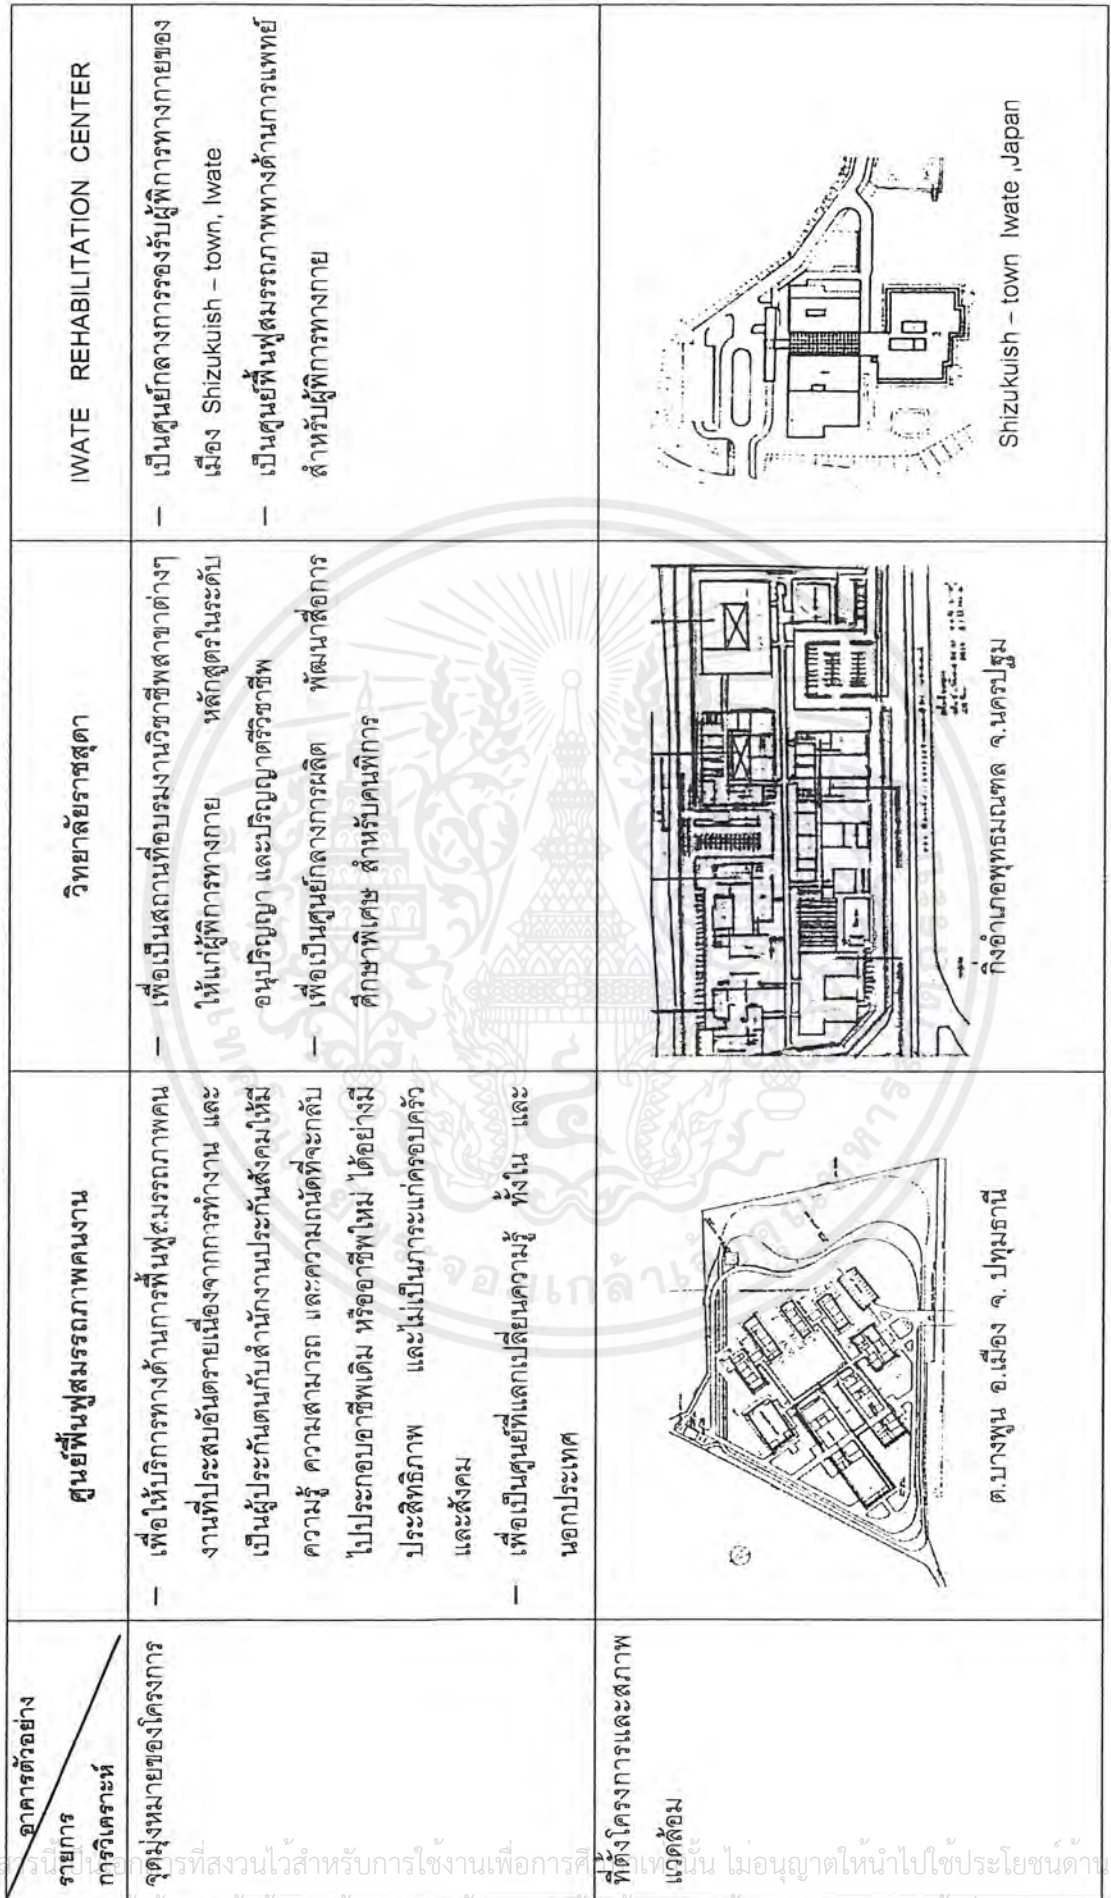 อาคารตัวอย่าง
รายการ
การวิเคราะห์
ศูนย์ฟื้นฟูสมรรถภาพคนงาน
วิทยาลัยราชสุดา
IWATE REHABILITATION CENTER
จุดมุ่งหมายของโครงการ
– เพื่อให้บริการทางด้านการฟื้นฟูสมรรถภาพคน
งานที่ประสบอันตรายเนื่องจากการทำงาน และ
เป็นผู้ประกันตนกับสำนักงานประกันสังคมให้มี
ความรู้ ความสามารถ และความถนัดที่จะกลับ
ไปประกอบอาชีพเดิม หรืออาชีพใหม่ ได้อย่างมี
ประสิทธิภาพ และไม่เป็นภาระแก่ครอบครัว
และสังคม
– เพื่อเป็นศูนย์ที่แลกเปลี่ยนความรู้ ทั้งใน และ
นอกประเทศ
– เพื่อเป็นสถานที่อบรมงานวิชาชีพสาขาต่างๆ
ให้แก่ผู้พิการทางกาย หลักสูตรในระดับ
อนุปริญญา และปริญญาตรีวิชาชีพ
– เพื่อเป็นศูนย์กลางการผลิต พัฒนาสื่อการ
ศึกษาพิเศษ สำหรับคนพิการ
– เป็นศูนย์กลางการรองรับผู้พิการทางกายของ
เมือง Shizukuish – town, Iwate
– เป็นศูนย์ฟื้นฟูสมรรถภาพทางด้านการแพทย์
สำหรับผู้พิการทางกาย
ที่ตั้งโครงการและสภาพ
แวดล้อม
ต.บางพูน อ.เมือง จ. ปทุมธานี
กิ่งอำเภอพุทธมณฑล จ.นครปฐม
Shizukuish – town Iwate ,Japan